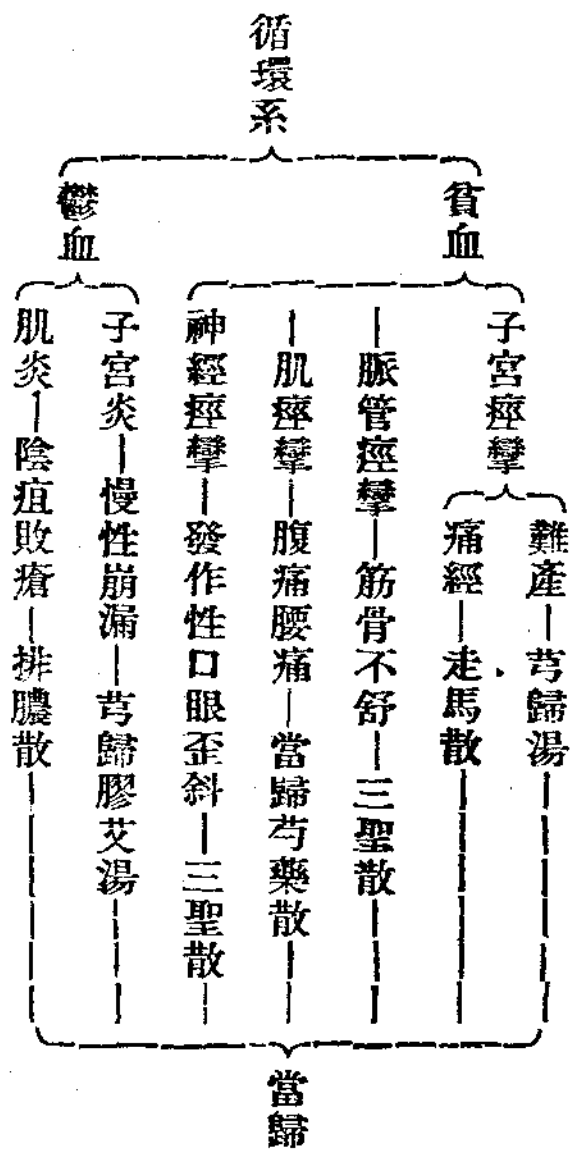 循環系
貧血
子宮痙攣
難產—芎歸湯
痛經—走馬散
—脈管痙攣—筋骨不舒—三聖散
—肌痙攣—腹痛腰痛—當歸芍藥散
神經痙攣—發作性口眼歪斜—三聖散
鬱血
子宮炎—慢性崩漏—芎歸膠艾湯
肌炎—陰疽敗瘡—排膿散
當歸